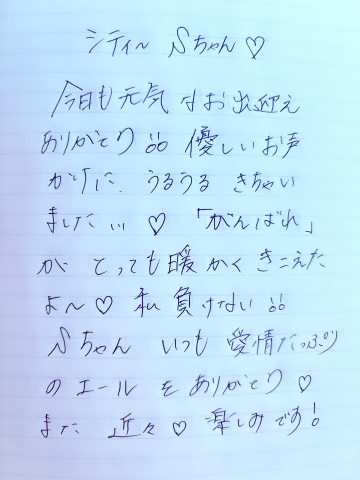 シティ～ Sちゃん♡
今日も元気なお出迎え
ありがとう!! 優しいお声
がけに、うるうる きちゃい
ました… ♡ 「がんばれ」
が とっても暖かく きこえた
よ～♡ 私 負けない!!
Sちゃん いつも 愛情たっぷり
の エール を ありがとう♡
また 近々♡ 楽しみです!